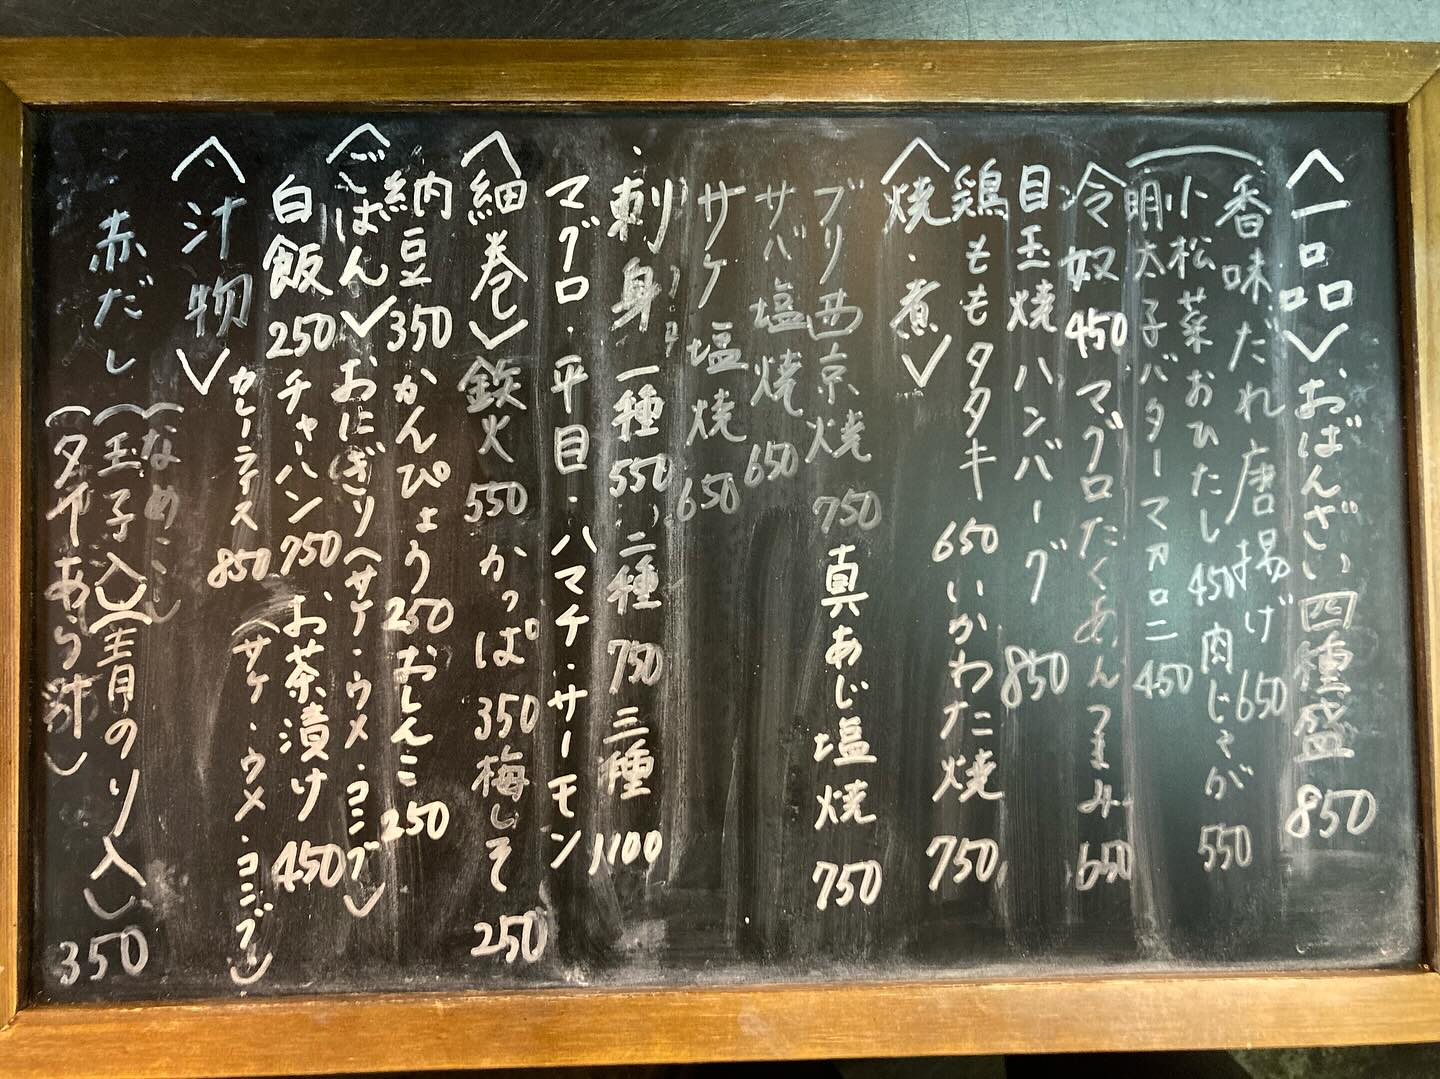 〈一品〉おばんざい四種盛 850
香味だれ唐揚げ 650
小松菜おひたし 450 肉じゃが 550
明太子バターマカロニ 450
冷奴 450 マグロたくあんつまみ 650
目玉焼ハンバーグ 850
鶏ももタタキ 650 いかわた焼 750
〈焼・煮〉
ブリ西京焼 750 真あじ塩焼 750
サバ塩焼 650
サケ塩焼 650
刺身 一種 550 二種 750 三種 1100
マグロ・平目・ハマチ・サーモン
〈細巻〉鉄火 550 かっぱ 350 梅しそ 250
納豆 350 かんぴょう 250 おしんこ 250
〈ごはん〉おにぎり(サケ・ウメ・コンブ)
白飯 250 チャーハン 750 お茶漬け 450
カレーライス 850 (サケ・ウメ・コンブ)
〈汁物〉
赤だし (なめこ)
(玉子入)(青のり入) 350
(タイあら汁)